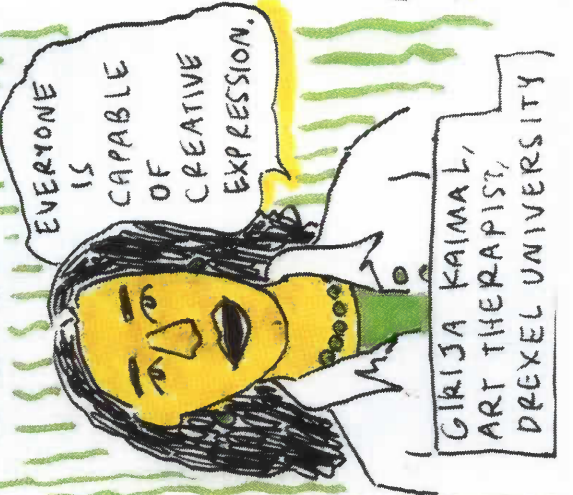 EVERYONE
IS
CAPABLE
OF
CREATIVE
EXPRESSION.
GIRIJA KAIMAL,
ART THERAPIST,
DREXEL UNIVERSITY